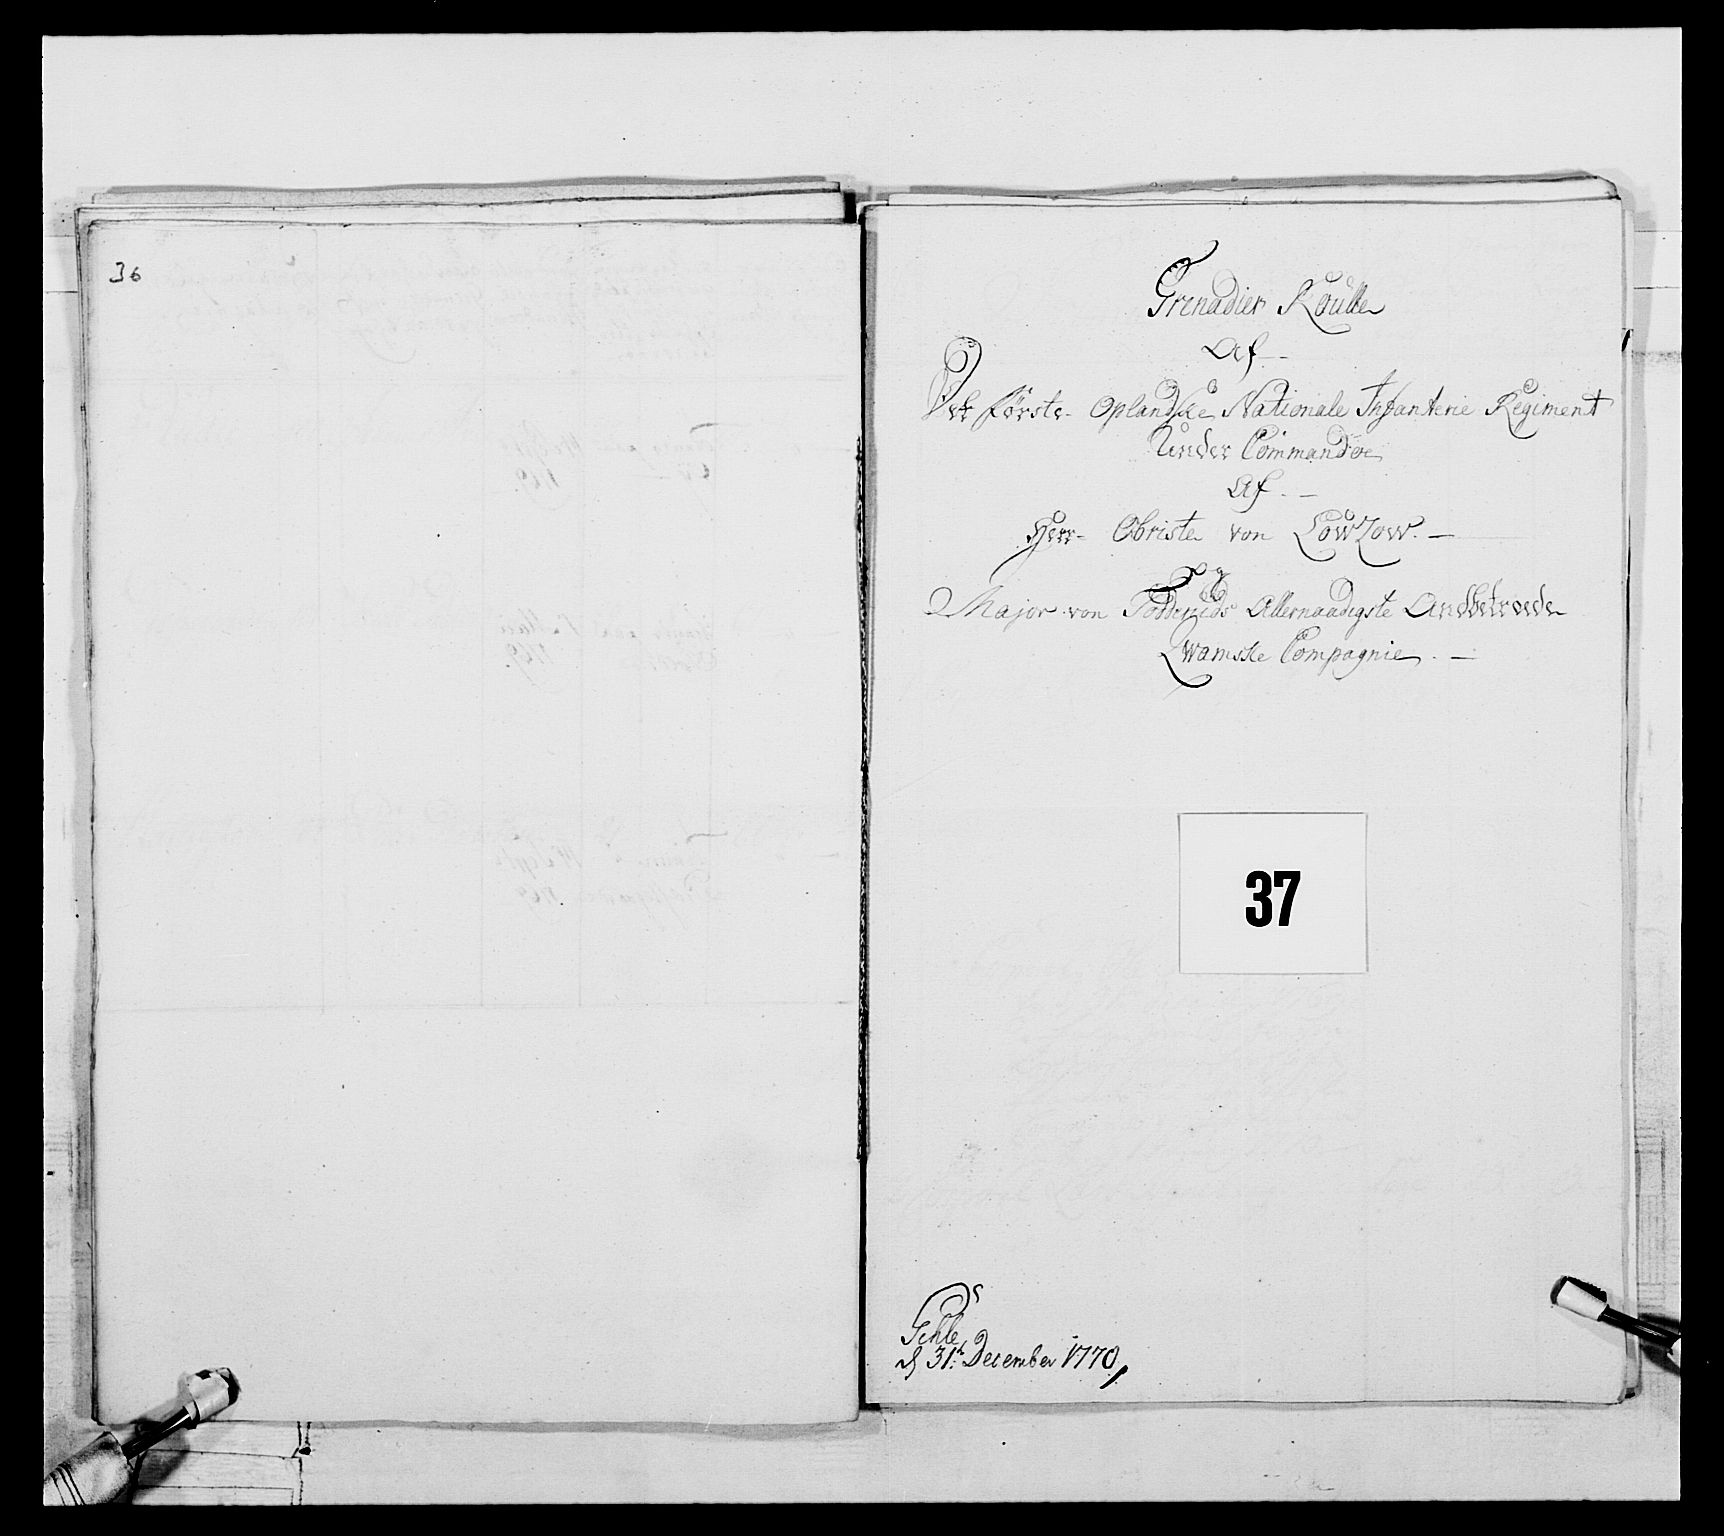 36
Grenadier Roulle
Af
Det første Oplandske Nationale Infanterie Regiment
Under Commandoe
Af
Herr Obriste von Lowzow.
Og
Major von Allernaadigste Anbetroede
Qwamske Compagnie.
37
d 31t December 1770,